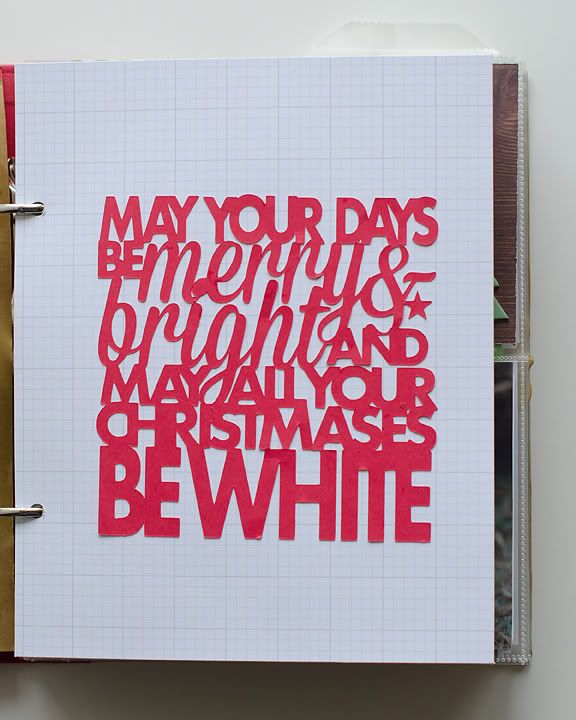 MAY YOUR DAYS
BE merry &
bright AND
MAY ALL YOUR
CHRISTMASES
BE WHITE